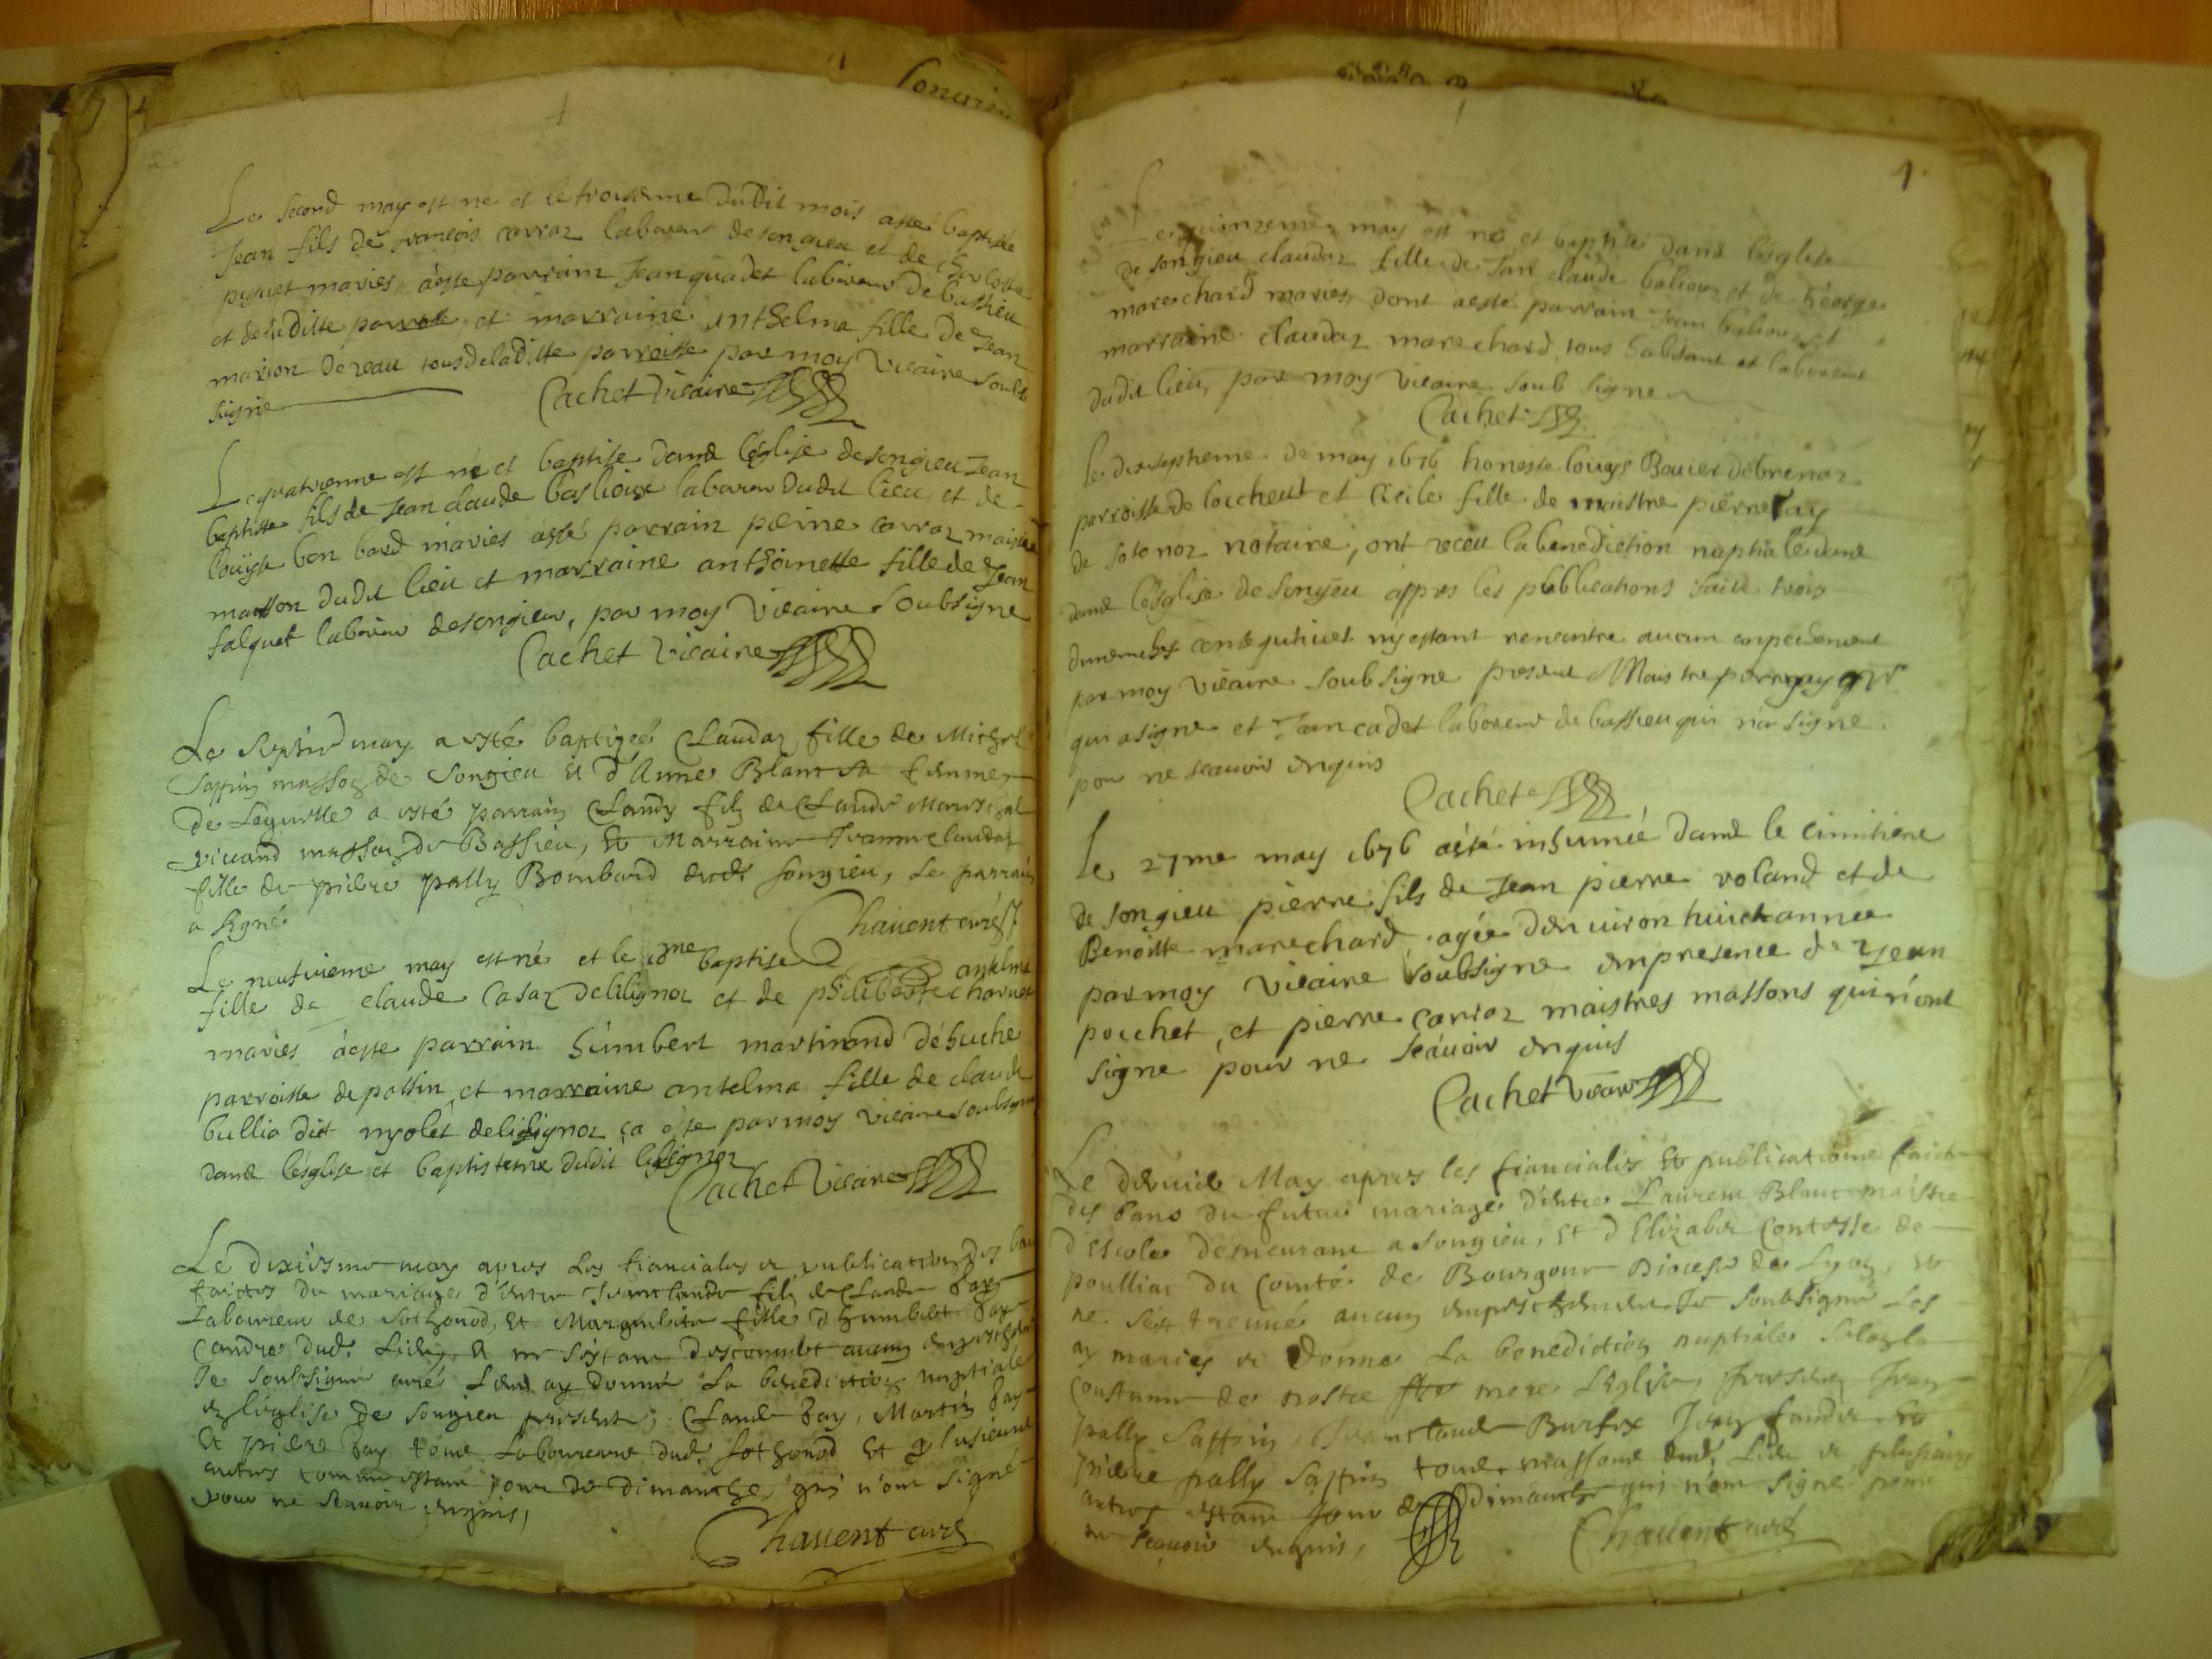 Conuien
Le second may est né et le troisieme dudit mois a esté baptisé
Jean fils de francois carraz laboreur de songieu et de charlotte
piguet mariés, a este parrain Jean quadet laboreur de bassieu
et de laditte parroisse et marraine anthelma fille de Jean
marion de reau tous de laditte parroisse par moy vicaire soub
signe
Cachet vicaire
Le quatrieme est né et baptise dans léglise de songieu Jean
baptiste fils de Jean claude baslioux laboreur dudit lieu, et de
louyse bon bard mariés a esté parrain pierre carraz maistre
masson dudit lieu et marraine anthoinette fille de Jean
falquet laboreur de songieu, par moy vicaire soubsigne
Cachet vicaire
Le may a esté baptizée Claudaz fille de Michel
Sappin masson de Songieu et d'Anne Blanc sa femme
De Laquelle a esté parrain Claudy filz de Claude
masson de Bassieu, Et Marraine Jeanne claudaz
fille de pierre pally Bombard dud. songieu, Le parrain
a signé
Chauent curé
Le neufvieme may est né et le 10me baptise anselma
fille de claude Casaz de lilignoz et de philiberte charuet
mariés a este parrain humbert martinand de huche
parroisse de passin et marraine antelma fille de claude
bullio dict nyolet de lilignoz ça este par moy vicaire soubsigne
dans lésglise et baptistere dudit lilignoz
Cachet vicaire
Le dixiesme may apres les fiancialles et publications des bans
faictes du mariage d'entre Jeanclaude filz de Claude fay
Laboureur de Sothonod, Et Marguerite fille d'humbert fay
dud. Lieu, et ne s'estant descouuert aucun empeschement
Je soubsigné curé Leur ay donné La benediction nuptiale
en l'église de songieu presents, Claude fay, Martin fay
Et pierre fay tous Laboureurs dud. Sothonod Et plusieurs
autres comme estant jour de dimanche, qui n'ont signé
pour ne scauoir enquis,
Chauent curé
4
Le quinzeme may est né et baptise dans lésglise
de songieu claudaz fille de Jan claude balioux et de George
marechard mariés, dont a esté parrain Jean balioux et
marraine claudaz marechard tous habitans et laboreur
dudit lieu, par moy vicaire soub signe
Cachet
le dix septieme de may 1676 honeste louys Bouier de brenaz
parroisse de loicheut et Cicile fille de maistre pierre fay
de sotonoz notaire, ont receu la benediction nuptiale dans
dans lésglise de songieu appres les publications faite trois
dimenches consequtiues ny estant rencontre aucun empechement
par moy vicaire soubsigne present Maistre pierre fay
qui a signe et Jean cadet laboreur de bassieu qui n'a signe
pour ne scauoir enquis
Cachet
Le 27me may 1676 a esté inhumée dans le cimitiere
de songieu pierre fils de Jean pierre roland et de
Benoitte marechard, agée d'enuiron huict année
par moy vicaire soubsigne en presence de Jean
pochet, et pierre carraz maistres massons qui n'ont
signe pour ne scauoir enquis
Cachet vicaire
Le dernier May apres les fiancialles Et publications faicte
des bans du futur mariage d'entre Laurent Blanc maistre
d'escole demeurant a Songieu, Et d'Elizabet Contesse de
poulliac du Comté de Bourgone Diocese de Lyon, Et
ne s'est treuué aucun empeschement Je Soubsigné Les
ay mariés et donné La benediction nuptiale selon la
Coustume de nostre mere L'Eglise, presents Jean
pally Sappin, Jeanclaude Burfex Jean Et
pierre pally Sappin tous massons dud. Lieu et plusieurs
autres estant Jour de Dimanche qui n'ont signe pour
ne scauoir enquis,
Chauent curé